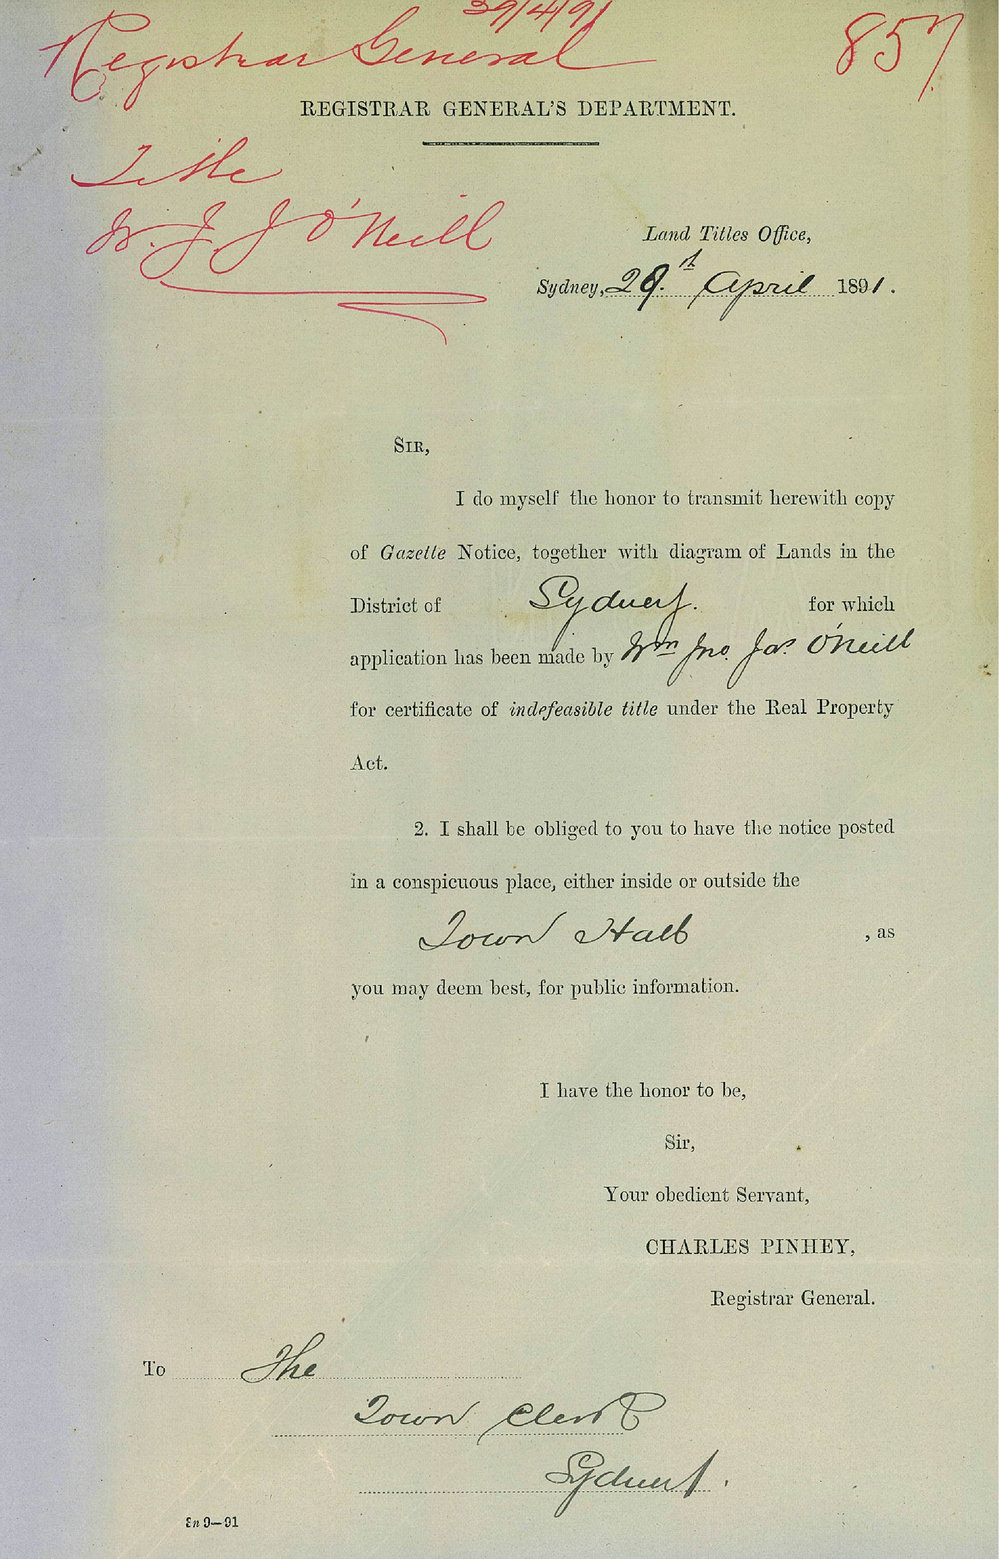 30/4/91
Registrar General
857
REGISTRAR GENERAL'S DEPARTMENT.
Title
W. J. J O'Neill
Land Titles Office,
Sydney, 29.t April 1891.
SIR,
I do myself the honor to transmit herewith copy
of Gazette Notice, together with diagram of Lands in the
District of Sydney. for which
application has been made by Wm Jno. Jas. O'Neill
for certificate of indefeasible title under the Real Property
Act.
2. I shall be obliged to you to have the notice posted
in a conspicuous place, either inside or outside the
Town Hall , as
you may deem best, for public information.
I have the honor to be,
Sir,
Your obedient Servant,
CHARLES PINHEY,
Registrar General.
To The
Town Clerk
Sydney.
9—91